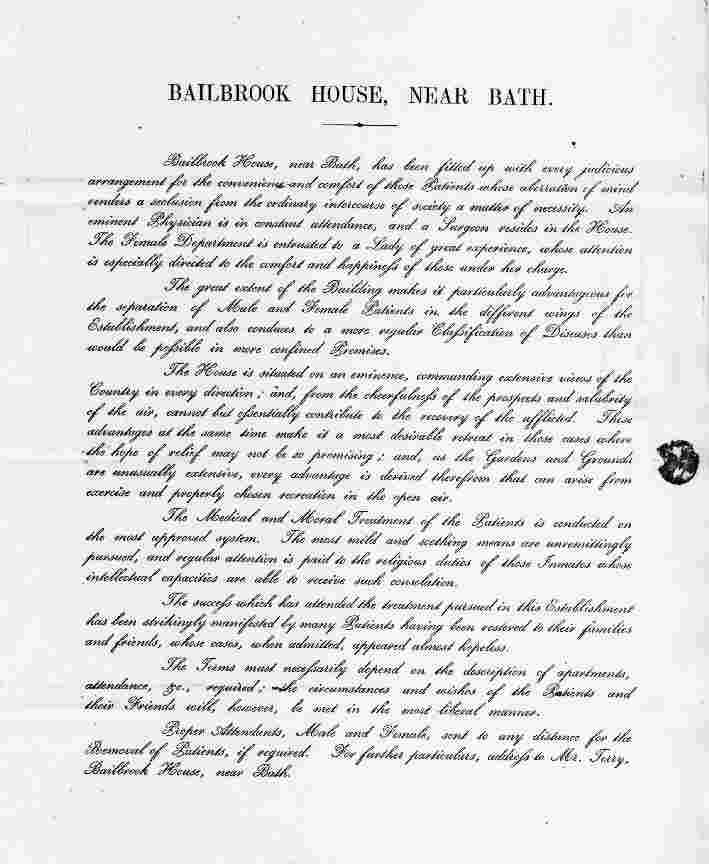 BAILBROOK HOUSE, NEAR BATH.
Bailbrook House, near Bath, has been fitted up with every judicious
arrangement for the convenience and comfort of those Patients whose aberration of mind
renders a seclusion from the ordinary intercourse of society a matter of necessity. An
eminent Physician is in constant attendance, and a Surgeon resides in the House.
The Female Department is entrusted to a Lady of great experience, whose attention
is especially directed to the comfort and happineſs of those under her charge.
The great extent of the Building makes it particularly advantageous for
the separation of Male and Female Patients in the different wings of the
Establishment, and also conduces to a more regular Claſsification of Diseases than
would be poſsible in more confined Premises.
The House is situated on an eminence, commanding extensive views of the
Country in every direction; and, from the cheerfulneſs of the prospects and salubrity
of the air, cannot but eſsentially contribute to the recovery of the afflicted. These
advantages at the same time make it a most desirable retreat in those cases where
the hope of relief may not be so promising; and, as the Gardens and Grounds
are unusually extensive, every advantage is derived therefrom that can arise from
exercise and properly chosen recreation in the open air.
The Medical and Moral Treatment of the Patients is conducted on
the most approved system. The most mild and soothing means are unremittingly
pursued, and regular attention is paid to the religious duties of those Inmates whose
intellectual capacities are able to receive such consolation.
The succeſs which has attended the treatment pursued in this Establishment
has been strikingly manifested by many Patients having been restored to their families
and friends, whose cases, when admitted, appeared almost hopeless.
The Terms must neceſsarily depend on the description of apartments,
attendance, &c., required; the circumstances and wishes of the Patients and
their Friends will, however, be met in the most liberal manner.
Proper Attendants, Male and Female, sent to any distance for the
Removal of Patients, if required. For further particulars, addreſs to Mr. Terry,
Bailbrook House, near Bath.